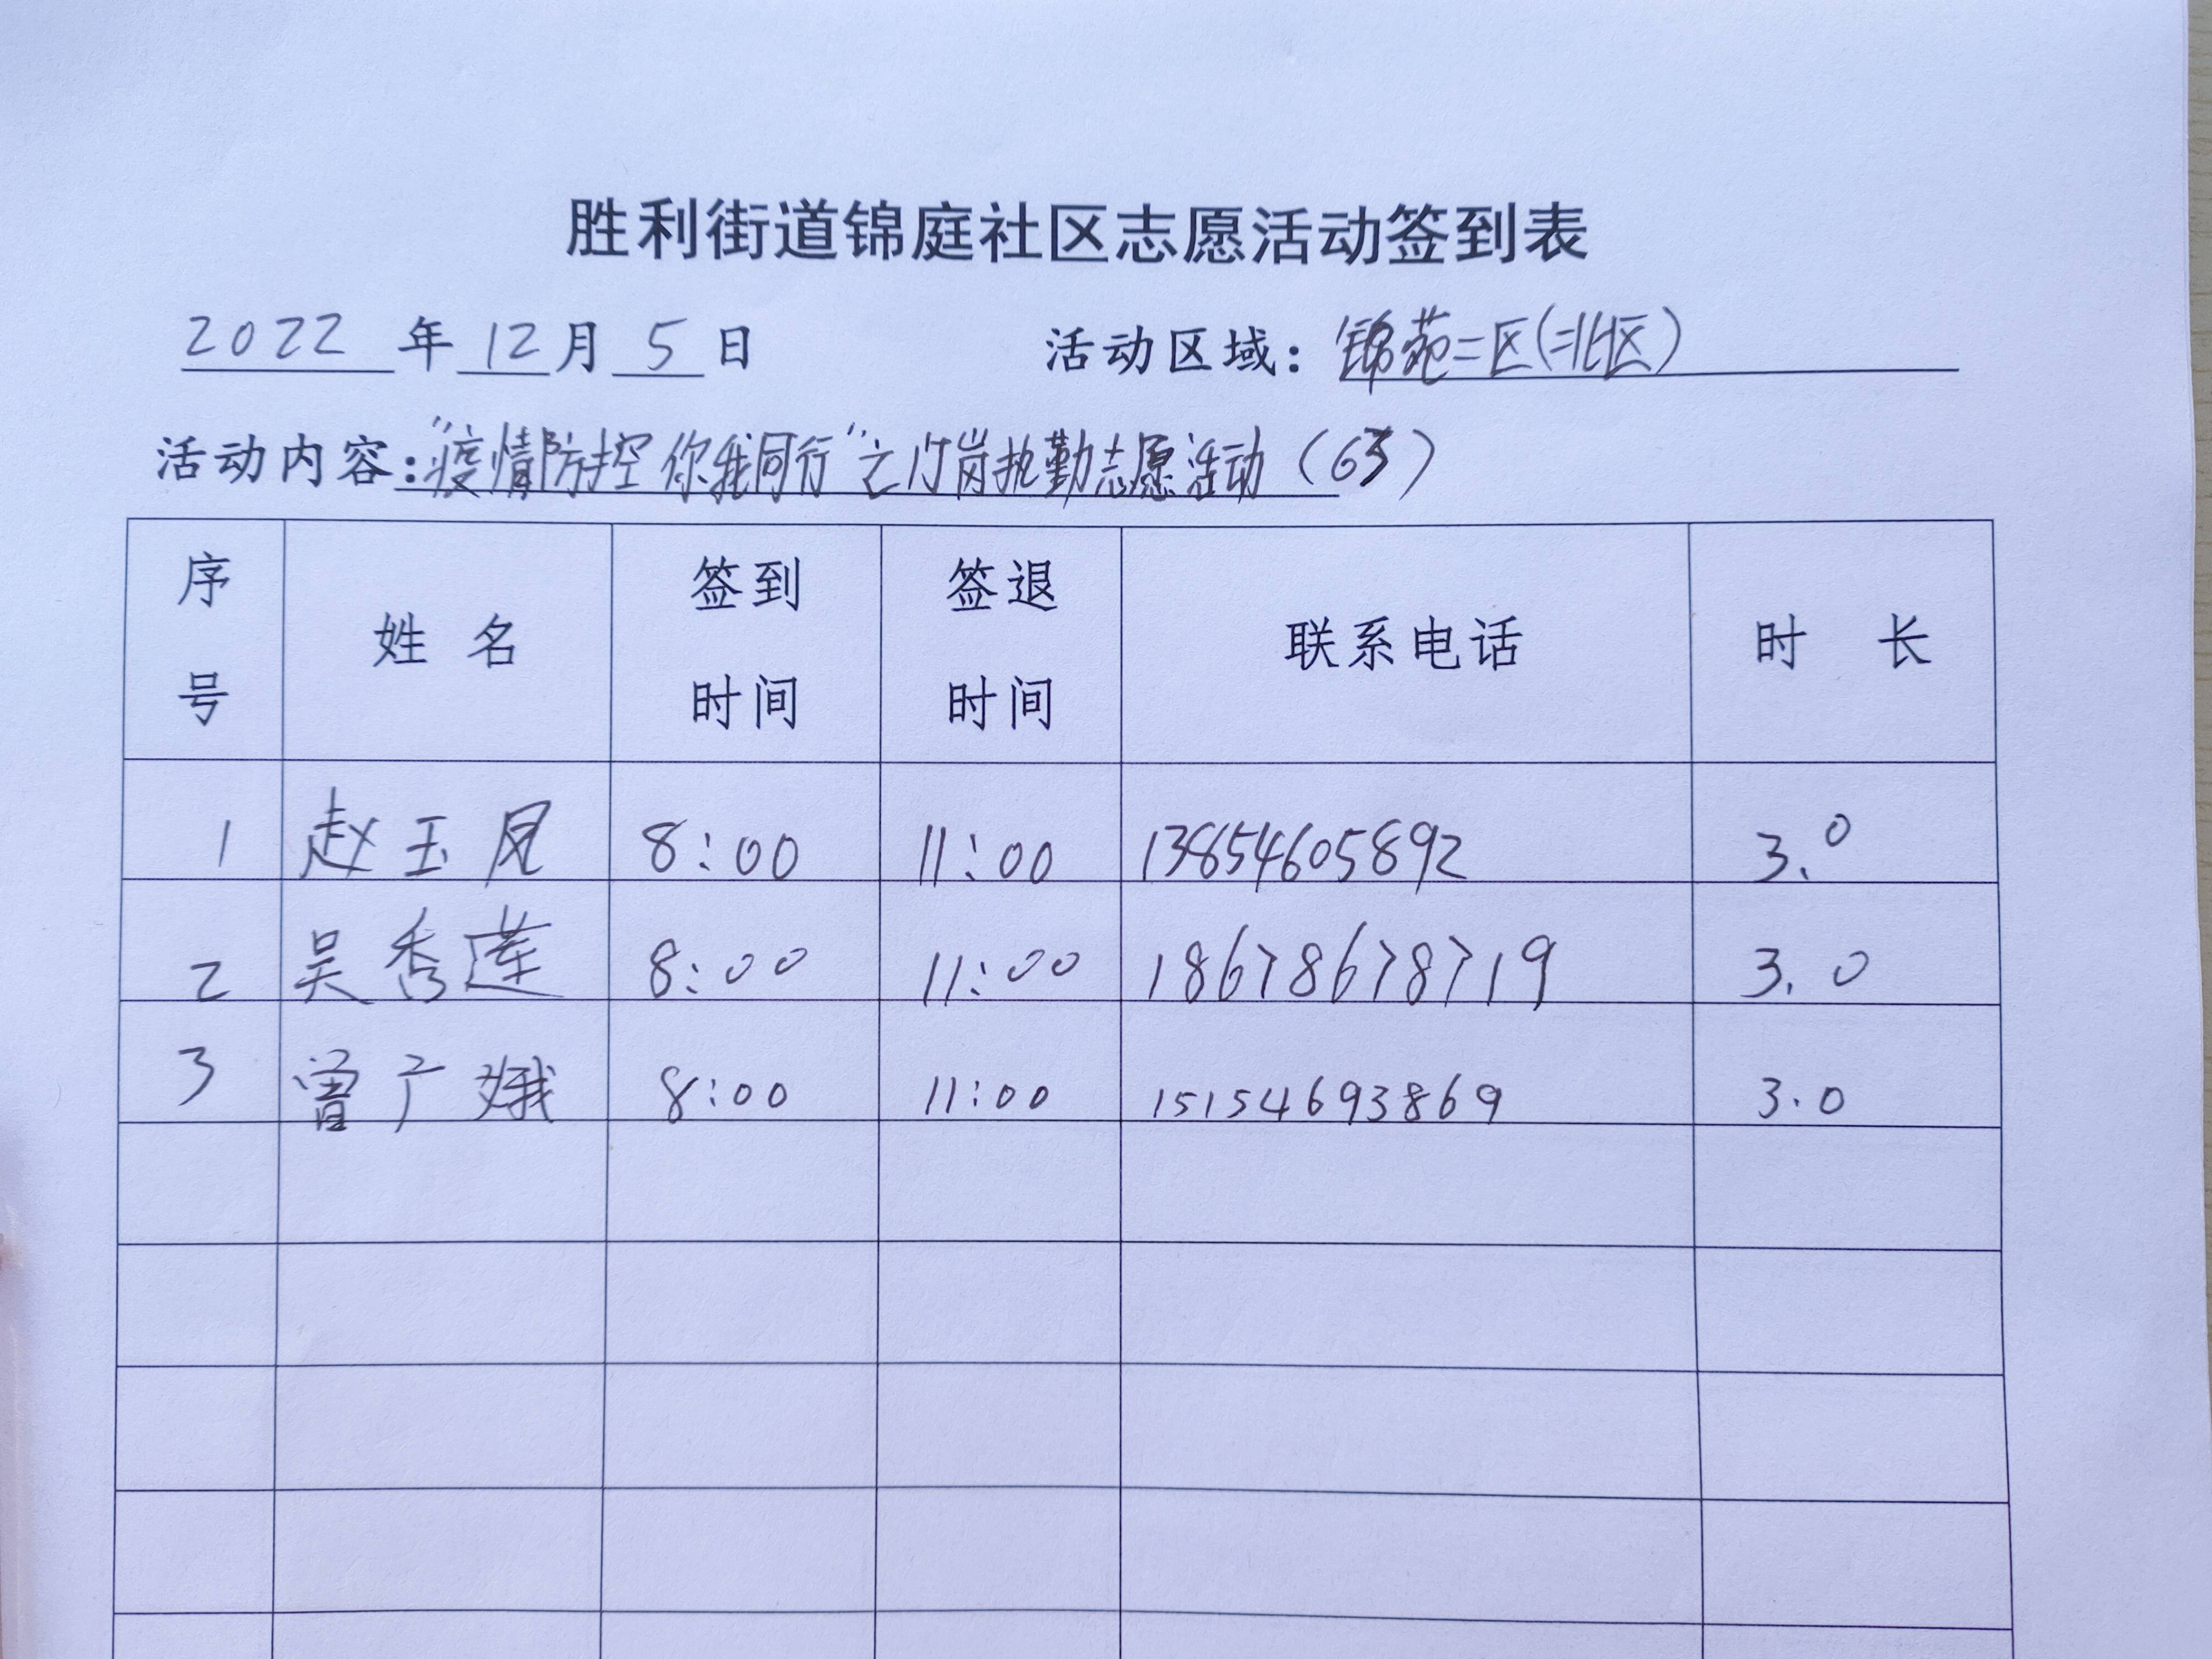 胜利街道锦庭社区志愿活动签到表
2022 年 12 月 5 日 活动区域：锦苑二区(北区)
活动内容："疫情防控 你我同行"之门岗执勤志愿活动（63）
序号 姓名 签到时间 签退时间 联系电话 时长
1 赵玉凤 8:00 11:00 13854605892 3.0
2 吴秀莲 8:00 11:00 18678678719 3.0
3 曾广娥 8:00 11:00 15154693869 3.0